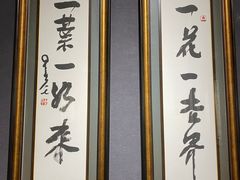 一花一世界
一葉一如来